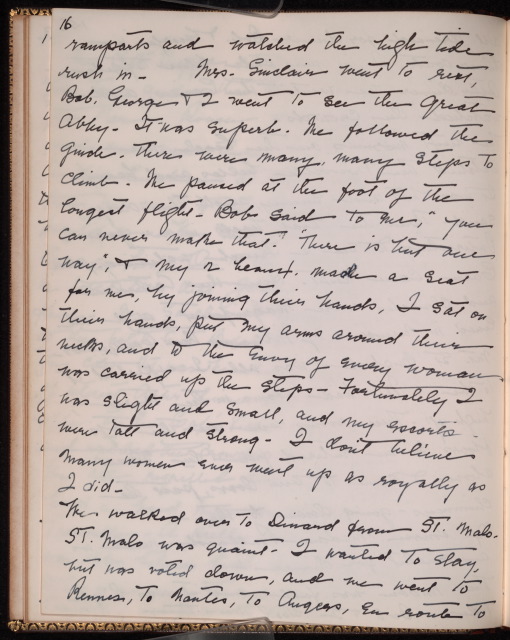 16
ramparts and watched the high tide
rush in - Mrs. Sinclair went to rest,
Bob, George & I went to see the Great
Abby - It was superb. We followed the
guide. There were many, many steps to
climb. We paused at the foot of the
longest flight - Bob said to me, "you
can never make that." "There is but one
way", & my 2 beaux made a seat
for me, by joining their hands, I sat on
their hands, put my arms around their
necks, and to the envy of every woman
was carried up the steps - Fortunately I
was slight and small, and my escorts
were tall and strong - I don't believe
many women ever went up as royally as
I did -
We walked over to Dinard from St. Malo.
St. Malo was quaint - I wanted to stay,
but was voted down, and we went to
Rennes, to Nantes, to Angers, en route to